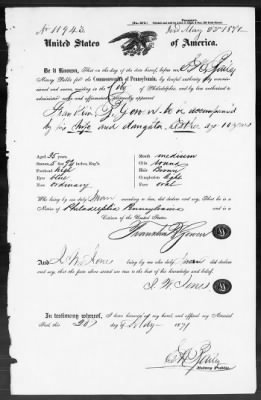 No 11942
Issd May 23 1871
United States of America.
Be it Known, That on the day of the date hereof, before me
Notary Public for the Commonwealth of Pennsylvania, by lawful authority duly commissioned
and sworn, residing in the City of Philadelphia, and by that authority authorized to
administer oaths and affirmations, personally appeared
Franklin B. Gowen to be accompanied
by his wife and daughter, Esther age 10 years
Aged 35 years
Stature 5 feet
Forehead high
Eyes blue
Nose ordinary
Mouth medium
Chin round
Hair Brown
Complexion light
Face oval
Who being by me duly sworn according to law, did declare and say, That he is a
Native of Philadelphia Pennsylvania and is a
Citizen of the United States.
Franklin B. Gowen
And J. W. Jones being by me also duly sworn did declare
and say, that the facts above stated are true to the best of his knowledge and belief.
J. W. Jones
In testimony whereof, I have hereunto set my hand and affixed my Notarial
Seal, this day of May 1871
Notary Public